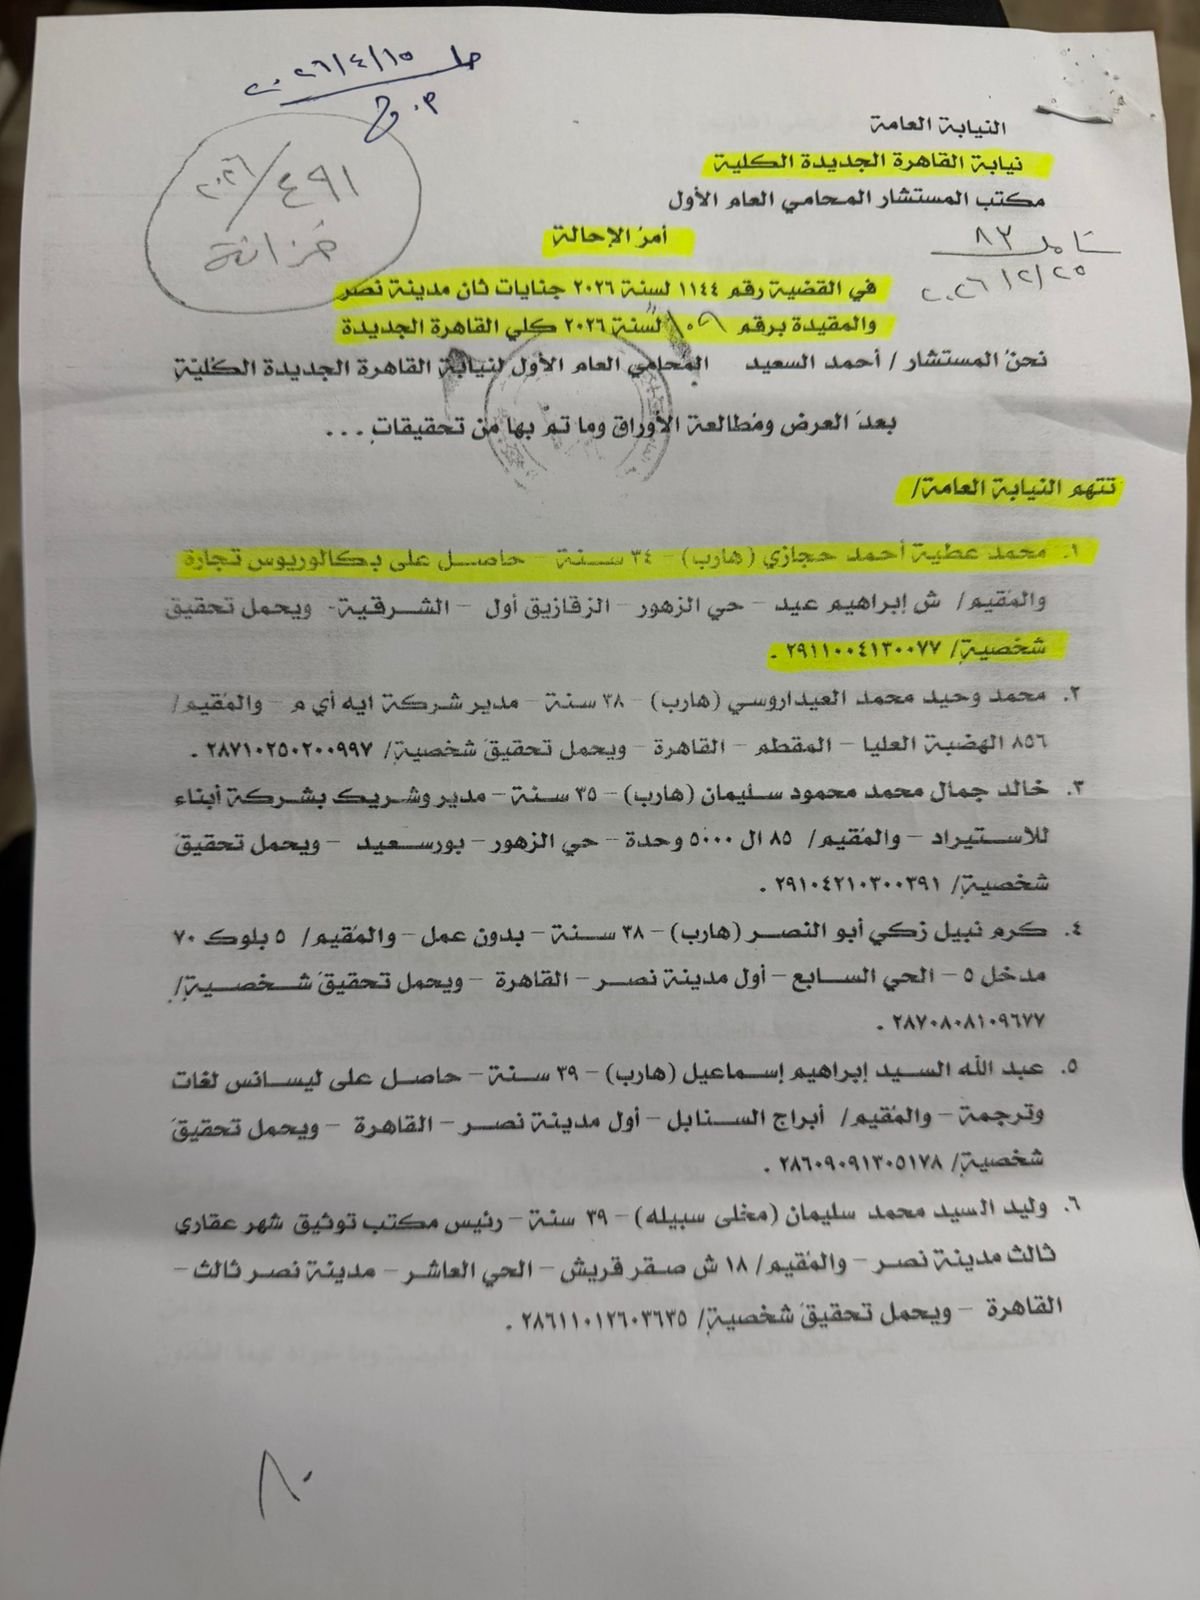 ط ٢٠٢٦/٤/١٥
٤٩١/٢٠٢٦
خزانة
النيابة العامة
نيابة القاهرة الجديدة الكلية
مكتب المستشار المحامي العام الأول
٨٣
٢٠٢٦/٢/٢٥
أمرُ الإحالة
في القضية رقم ١١٤٤ لسنة ٢٠٢٦ جنايات ثان مدينة نصر
والمقيدة برقم لسنة ٢٠٢٦ كلي القاهرة الجديدة
نحنُ المستشار / أحمد السعيد المحامي العام الأول لنيابة القاهرة الجديدة الكليّة
بعدَ العرض ومُطالعة الأوراق وما تمّ بها من تحقيقاتٍ ...
تتهم النيابة العامة/
١. محمد عطية أحمد حجازي (هارب) – ٣٤ سنة – حاصل على بكالوريوس تجارة
والمُقيم/ ش إبراهيم عيد – حي الزهور – الزقازيق أول – الشرقية- ويحمل تحقيق
شخصيةٍ/ ٢٩١١٠٠٤١٣٠٠٧٧ .
٢. محمد وحيد محمد العيداروسي (هارب) – ٣٨ سنة – مدير شركة ايه أي م – والمُقيم/
٨٥٦ الهضبة العليا – المقطم – القاهرة – ويحمل تحقيقَ شخصيةٍ/ ٢٨٧١٠٢٥٠٢٠٠٩٩٧ .
٣. خالد جمال محمد محمود سليمان (هارب) – ٣٥ سنة – مدير وشريك بشركة أبناء
للاستيراد – والمُقيم/ ٨٥ ال ٥٠٠٠ وحدة – حي الزهور – بورسعيد – ويحمل تحقيقَ
شخصيةٍ/ ٢٩١٠٤٢١٠٣٠٠٣٩١ .
٤. كرم نبيل زكي أبو النصر (هارب) – ٣٨ سنة – بدون عمل – والمُقيم/ ٥ بلوك ٧٠
مدخل ٥ – الحي السابع – أول مدينة نصر – القاهرة – ويحمل تحقيقَ شخصيةٍ/
٢٨٧٠٨٠٨١٠٩٦٧٧ .
٥. عبد الله السيد إبراهيم إسماعيل (هارب) – ٣٩ سنة – حاصل على ليسانس لغات
وترجمة – والمُقيم/ أبراج السنابل – أول مدينة نصر – القاهرة – ويحمل تحقيقَ
شخصيةٍ/ ٢٨٦٠٩٠٩١٣٠٥١٧٨ .
٦. وليد السيد محمد سليمان (مخلى سبيله) – ٣٩ سنة – رئيس مكتب توثيق شهر عقاري
ثالث مدينة نصر – والمُقيم/ ١٨ ش صقر قريش – الحي العاشر – مدينة نصر ثالث –
القاهرة – ويحمل تحقيقَ شخصيةٍ/ ٢٨٦١١٠١٢٦٠٣٦٣٥ .